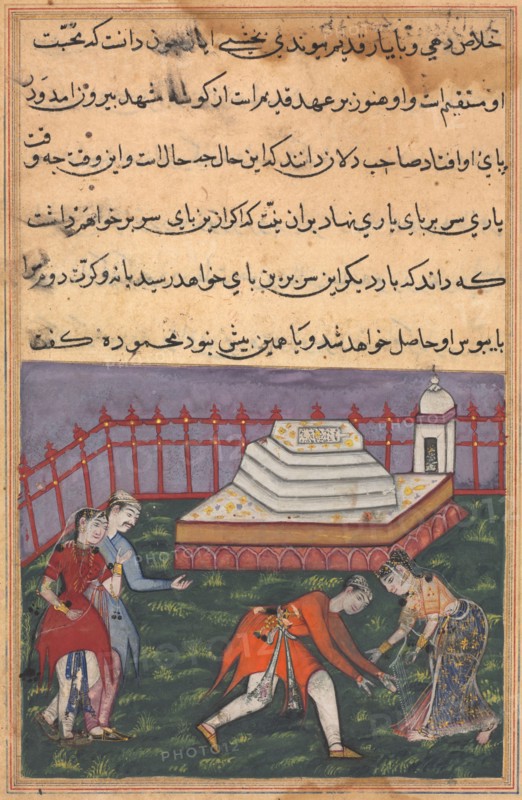 خلاص دهی و با یار قدیم پیوندی بخشی ایاز چون دانست که محبت
او مستقیم است و او هنوز بر عهد قدیم است از کوشه مشهد بیرون امد و بر
پای او افتاد صاحب دلان دانند که این حال چه حال است و این وقت چه وقت
یاری سر بر پای یاری نهاد بران نیت که اکر ازین پای سر بر خواهم داشت
که داند که بار دیکر این سر برین پای خواهد رسید یا نه و کرت دوم مرا
پایبوس او حاصل خواهد شد و یا همین بیش نبود محموده کفت
PHOTO12